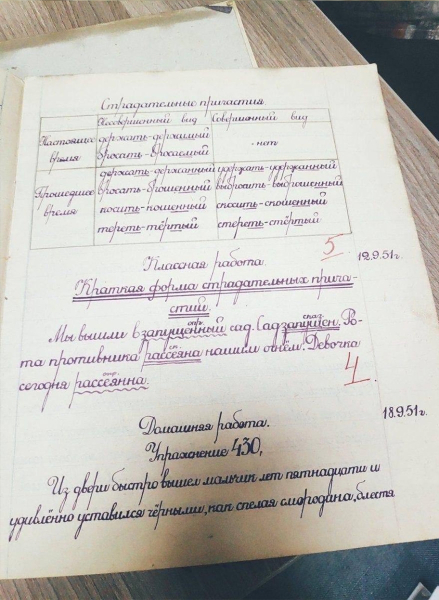 Страдательные причастия
Несовершенный вид Совершенный вид
Настоящее время держать-держимый - нет
бросать-бросаемый
Прошедшее время держать-держанный удержать-удержанный
бросать-брошенный выбросить-выброшенный
носить-ношенный сносить-сношенный
тереть-тёртый стереть-стёртый
5
Классная работа. 12.9.51г.
Краткая форма страдательных прича-
стий.
Мы вышли в запущенный сад. Сад запущен. Ро-
та противника рассеяна нашим огнём. Девочка
сегодня рассеянна.
4
18.9.51г.
Домашняя работа.
Упражнение 430,
Из двери быстро вышел мальчик лет пятнадцати и
удивлённо уставился чёрными, как спелая смородина, блестя